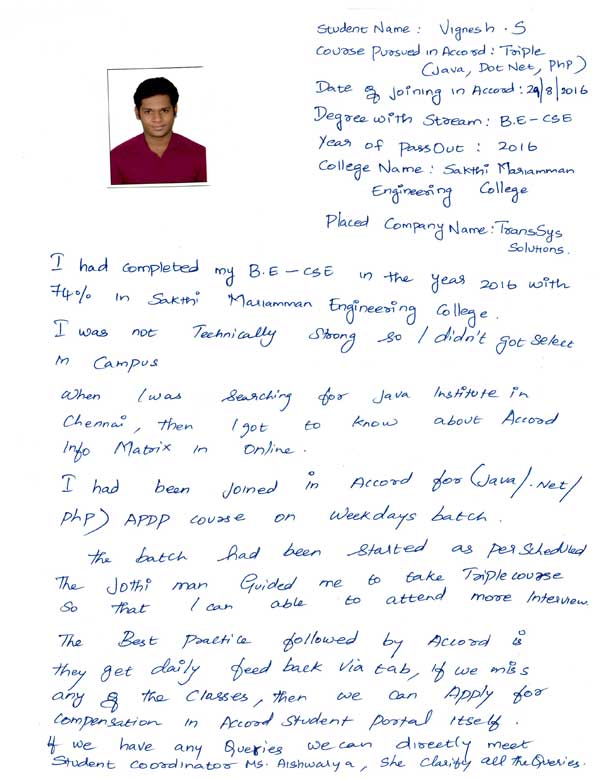 Student Name : Vignesh . S
Course Pursued in Accord : Triple
(Java, Dot Net, PhP)
Date of Joining in Accord : 29/8/2016
Degree with Stream : B.E - CSE
Year of Pass Out : 2016
College Name : Sakthi Mariamman
Engineering College
Placed Company Name : TransSys
Solutions.
I had completed my B.E - CSE in the year 2016 with
74% in Sakthi Mariamman Engineering College.
I was not Technically Strong so I didn't got select
in Campus
When I was Searching for Java Institute in
Chennai, then I got to know about Accord
Info Matrix in Online.
I had been Joined in Accord for (Java/.Net/
PhP) APDP course on Weekdays batch.
The batch had been started as per Scheduled
The Jothi mam Guided me to take Triple course
So that I can able to attend more Interview.
The Best Practice followed by Accord is
they get daily feed back via tab, If we miss
any of the Classes, then we can Apply for
Compensation in Accord Student Portal itself.
If we have any Queries we can directly meet
Student coordinator Ms. Aishwarya, She Clarify all the Queries.